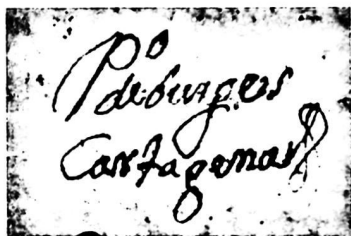 Pº
de burgos
Cartagena